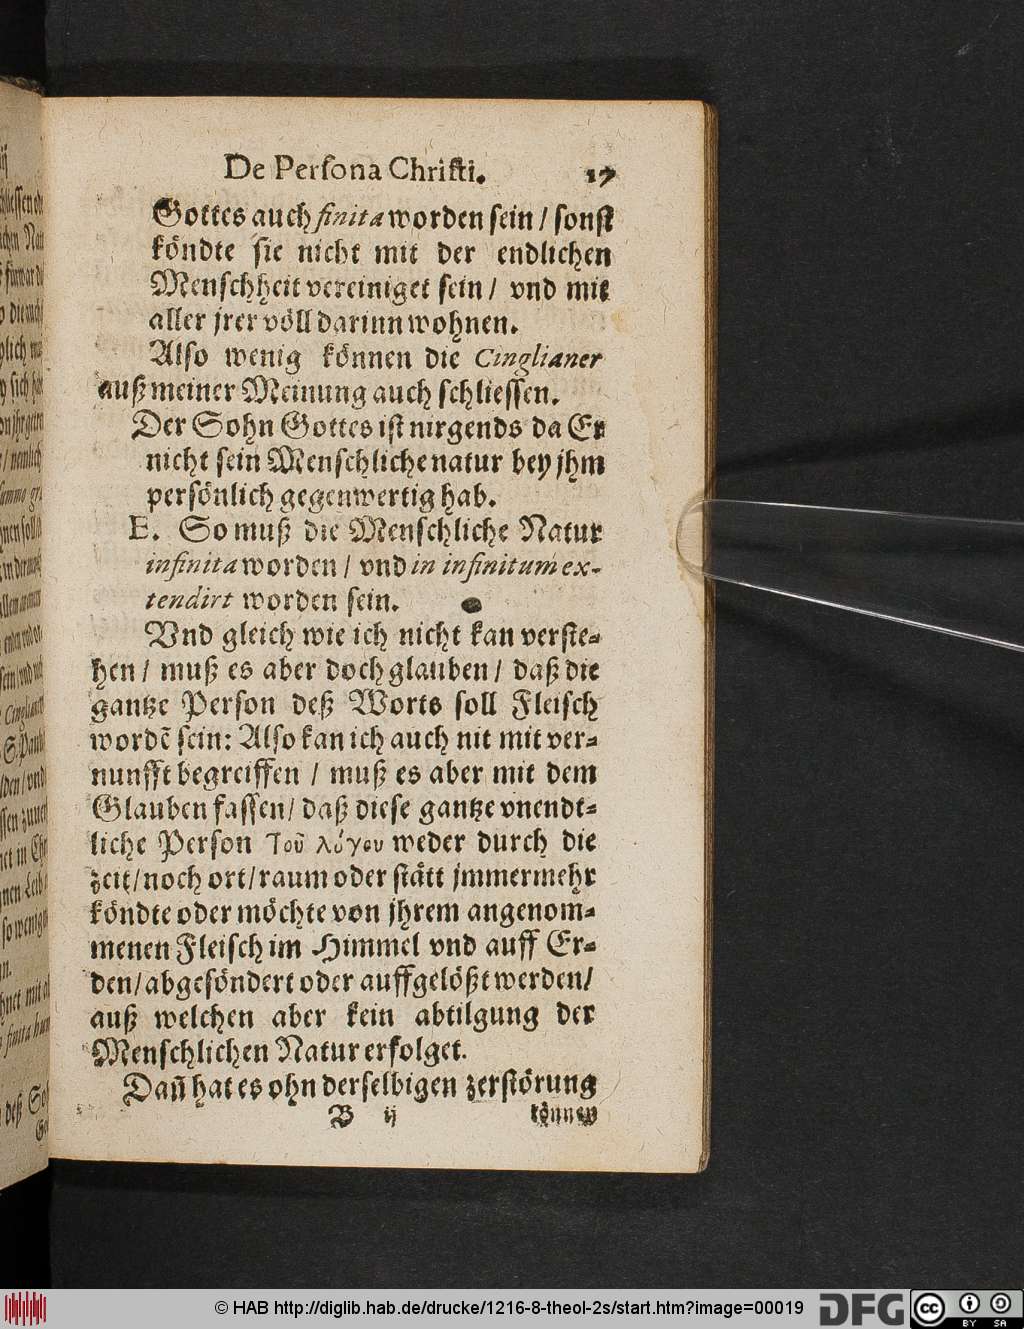 De Persona Christi. 17
Gottes auch finita worden sein / sonst
köndte sie nicht mit der endlichen
Menschheit vereiniget sein / vnd mit
aller jrer völl darinn wohnen.
Also wenig können die Cinglianer
auß meiner Meinung auch schliessen.
Der Sohn Gottes ist nirgends da Er
nicht sein Menschliche natur bey jhm
persönlich gegenwertig hab.
E. So muß die Menschliche Natur
infinita worden / vnd in infinitum ex-
tendirt worden sein.
Vnd gleich wie ich nicht kan verste-
hen / muß es aber doch glauben / daß die
gantze Person deß Worts soll Fleisch
wordē sein: Also kan ich auch nit mit ver-
nunfft begreiffen / muß es aber mit dem
Glauben fassen / daß diese gantze vnendt-
liche Person Τοῦ λόγου weder durch die
zeit / noch ort / raum oder stätt jmmermehr
köndte oder möchte von jhrem angenom-
menen Fleisch im Himmel vnd auff Er-
den / abgesöndert oder auffgelößt werden /
auß welchen aber kein abtilgung der
Menschlichen Natur erfolget.
Dañ hat es ohn derselbigen zerstörung
B ij können
© HAB http://diglib.hab.de/drucke/1216-8-theol-2s/start.htm?image=00019
DFG cc BY SA